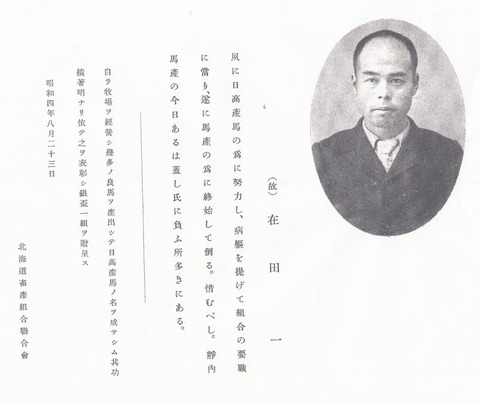 (故) 在田一
夙に日高產馬の爲に努力し、病軀を提げて組合の要職
に當り、遂に馬產の爲に終始して倒る。惜むべし。靜內
馬產の今日あるは蓋し氏に負ふ所多きにある。
自ラ牧場ヲ經營シ幾多ノ良馬ヲ產出シテ日高產馬ノ名ヲ成サシム其功
績著明ナリ依テ之ヲ表彰シ銀盃一組ヲ贈呈ス
昭和四年八月二十三日
北海道畜產組合聯合會